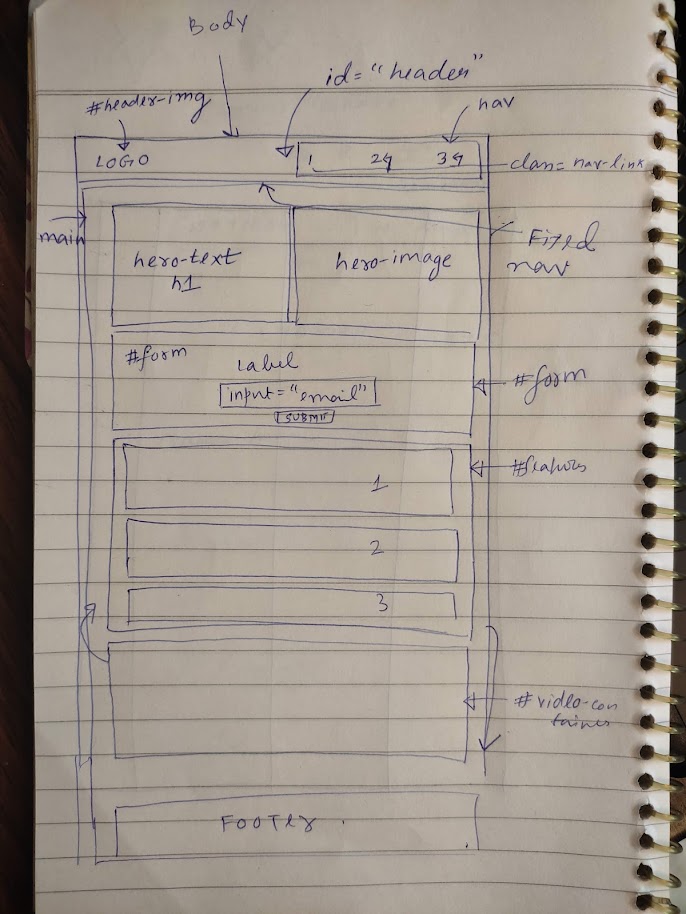 Body
id="header"
#header-img
nav
LOGO
1
class= nav-link
main
Fixed
nav
hero-text
h1
hero-image
#form
Label
input="email"
SUBMIT
#form
1
#features
2
3
#video-con
tainer
FOOTER